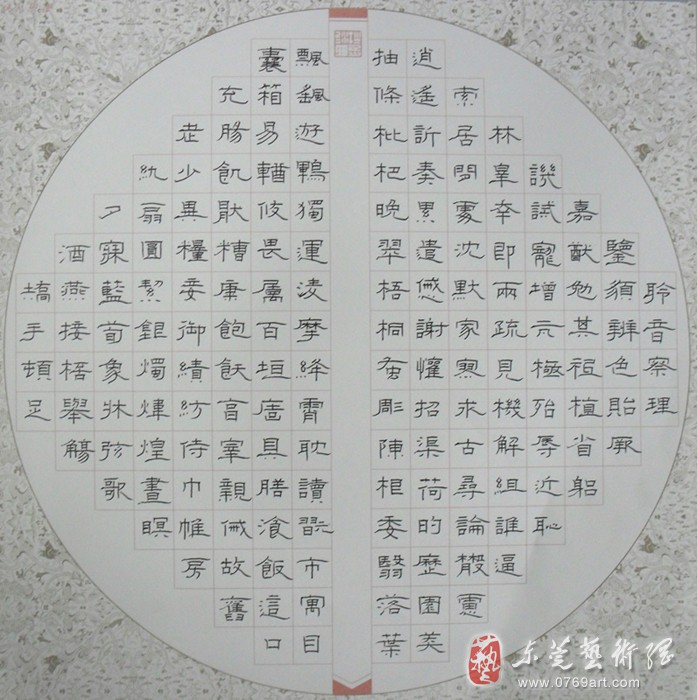 聆音察理
鑒須辨色貽厥
嘉猷勉其祗植省躬
譏誡寵增亢極殆辱近恥
林皋幸即兩疏見機解組誰逼
索居閒處沈默寂寥求古尋論散慮
逍遙訢奏累遣慼謝懽招渠荷的歷園莽
抽條枇杷晚翠梧桐蚤彫陳根委翳落葉
飄颻遊鵾獨運凌摩絳霄耽讀翫市寓目
囊箱易輶攸畏屬耳垣牆具膳飡飯適口
充腸飢猒糟康飽飫亯宰親戚故舊
老少異糧妾御績紡侍巾帷房
紈扇圓潔銀燭煒煌晝瞑
夕寐藍筍象牀弦歌
酒燕接桮舉觴
矯手頓足
藝
东莞藝術網
www.0769art.com